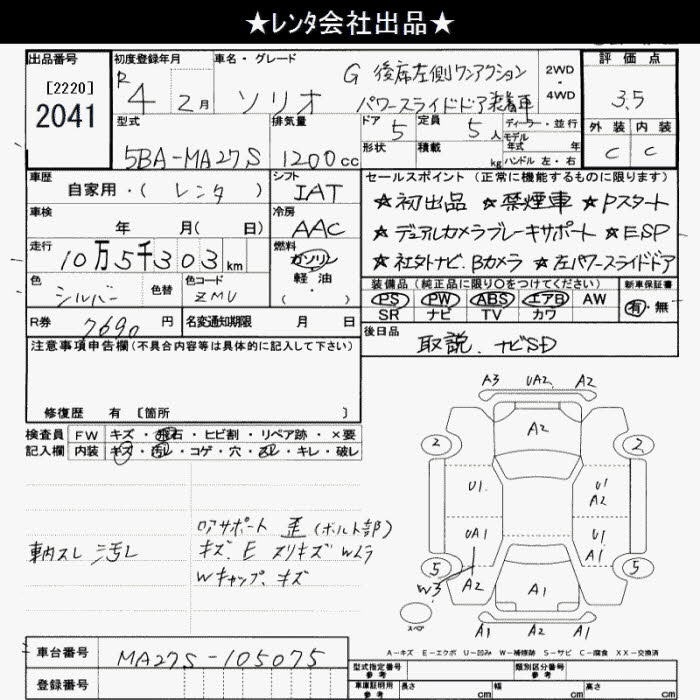 ★レンタ会社出品★
出品番号
[2220]
2041
初度登録年月
R 4 2月
車名・グレード
ソリオ
G 後席左側ワンアクション
パワースライドドア装着車
2WD
・
4WD
評価点
3.5
外装 内装
C C
型式
5BA-MA27S
排気量
1200cc
ドア 5
定員 5人
ディーラー・並行
モデル
年式 年
形状
積載 kg
ハンドル 左・右
車歴
自家用・( レンタ )
シフト
IAT
車検
年 月( 日)
冷房
AAC
走行
10万5千303km
燃料
ガソリン
軽油
色
シルバー
色替
色コード
ZMU
・
R券 7690円
名変通知期限 月 日
セールスポイント (正常に機能するものに限ります)
★初出品 ★禁煙車 ★Pスタート
★デュアルカメラブレーキサポート ★ESP
★社外ナビ.Bカメラ ★左パワースライドドア
装備品(純正品に限り○をつけてください)
PS PW ABS エアB AW
SR ナビ TV カワ
新車保証書
有・無
後日品
取説.ナビSD
注意事項申告欄(不具合内容等は具体的に記入して下さい)
修復歴 有 [箇所 ]
検査員
記入欄
FW キズ・飛石・ヒビ割・リペア跡・×要
内装 キズ・汚レ・コゲ・穴・スレ・キレ・破レ
車内スレ 汚レ
ロアサポート 歪(ボルト部)
キズ、E スリキズ Wムラ
Wキャップ、キズ
A3 UA2 A2
A2
2 2
U1 U1
A2
UA1 U1
A1
5 5
W3 A2 A1
スペア
A1 A2 A1
A-キズ E-エクボ U-凹み W-補修跡 S-サビ C-腐食 XX-交換済
車台番号 MA27S-105075
登録番号
型式指定番号
参考
類別区分番号
参考
車庫証明用
参考
長さ cm 幅 cm 高さ cm